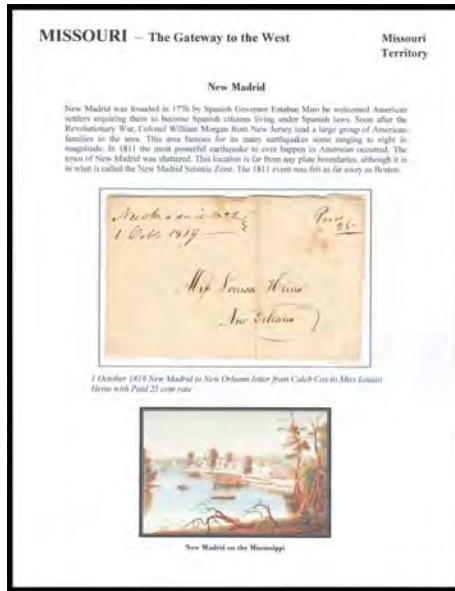 MISSOURI – The Gateway to the West
Missouri
Territory
New Madrid
New Madrid was founded in 1776 by Spanish Governor Estaban Miro he welcomed American
settlers requiring them to become Spanish citizens living under Spanish laws. Soon after the
Revolutionary War, Colonel William Morgan from New Jersey lead a large group of American
families to the area. This area famous for its many earthquakes some ranging to eight in
magnitude. In 1811 the most powerful earthquake to ever happen in American occurred. The
town of New Madrid was shattered. This location is far from any plate boundaries, although it is
in what is called the New Madrid Seismic Zone. The 1811 event was felt as far away as Boston.
1 Octr 1819
Paid
25
Miss Louisa Heins
New Orleans
1 October 1819 New Madrid to New Orleans letter from Caleb Cox to Miss Louisa
Heins with Paid 25 cent rate
New Madrid on the Mississippi